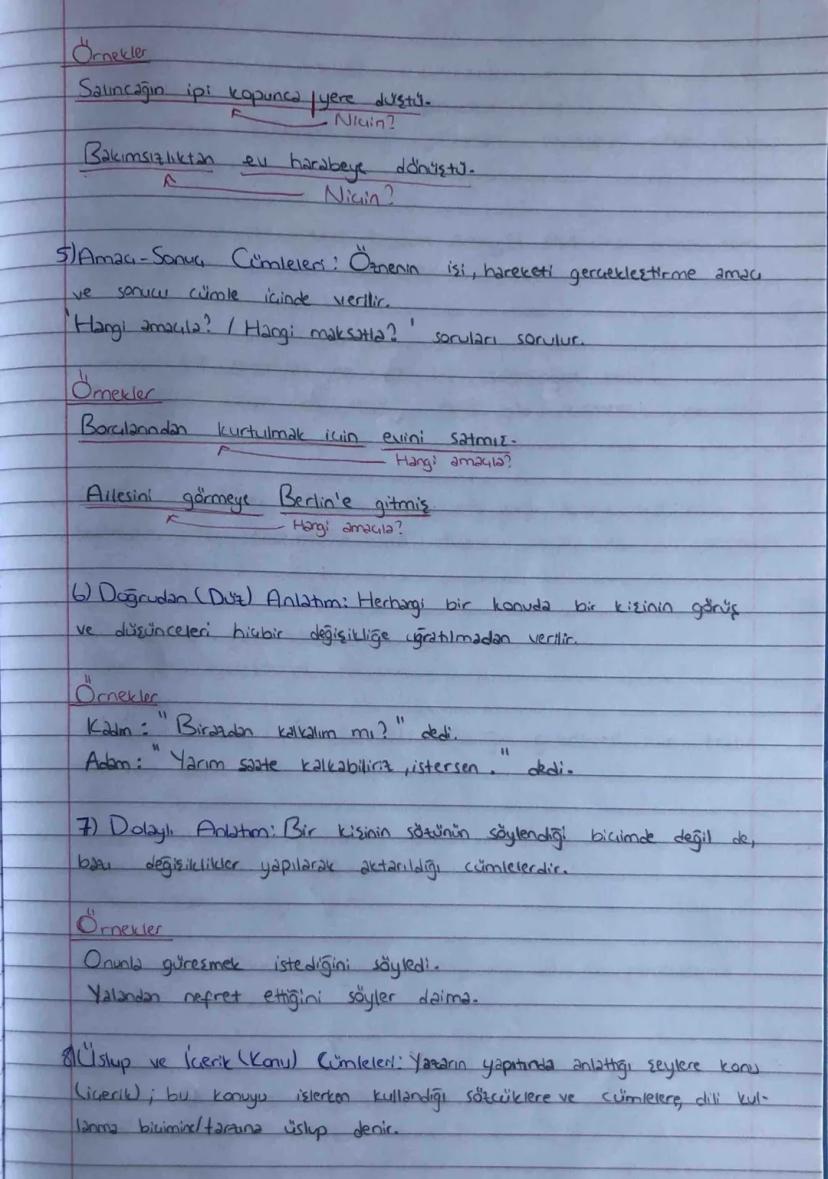 Örnekler
Salıncağın ipi kopunca yere düştü.
Niçin?
Bakımsızlıktan ev harabeye dönüştü.
Niçin?
5) Amaç-Sonuç Cümleleri: Öznenin işi, hareketi gerçekleştirme amacı
ve sonucu cümle içinde verilir.
'Hangi amaçla? / Hangi maksatla?' soruları sorulur.
Örnekler
Borçlarından kurtulmak için evini satmış.
Hangi amaçla?
Ailesini görmeye Berlin'e gitmiş
Hangi amaçla?
6) Doğrudan (Düz) Anlatım: Herhangi bir konuda bir kişinin görüş
ve düşünceleri hiçbir değişikliğe uğratılmadan verilir.
Örnekler
Kadın: "Birazdan kalkalım mı?" dedi.
Adam: "Yarım saate kalkabiliriz, istersen." dedi.
7) Dolaylı Anlatım: Bir kişinin sözünün söylendiği biçimde değil de,
bazı değişiklikler yapılarak aktarıldığı cümlelerdir.
Örnekler
Onunla güreşmek istediğini söyledi.
Yalandan nefret ettiğini söyler daima.
8) Üslup ve İçerik (Konu) Cümleleri: Yazarın yapıtında anlattığı şeylere konu
(içerik); bu konuyu işlerken kullandığı sözcüklere ve cümlelere, dili kul-
lanma biçimine/tarzına üslup denir.